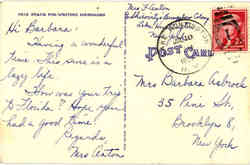 Mrs F. Anton
Hi Barbara:
Having a wonderful
time. This sure is a
lazy life.
How was your trip
to Florida? Hope you
had a good time!
Regards,
Mrs Anton
POST CARD
Mrs Barbara Asbrock
35 Pine St.
Brooklyn 8,
New York